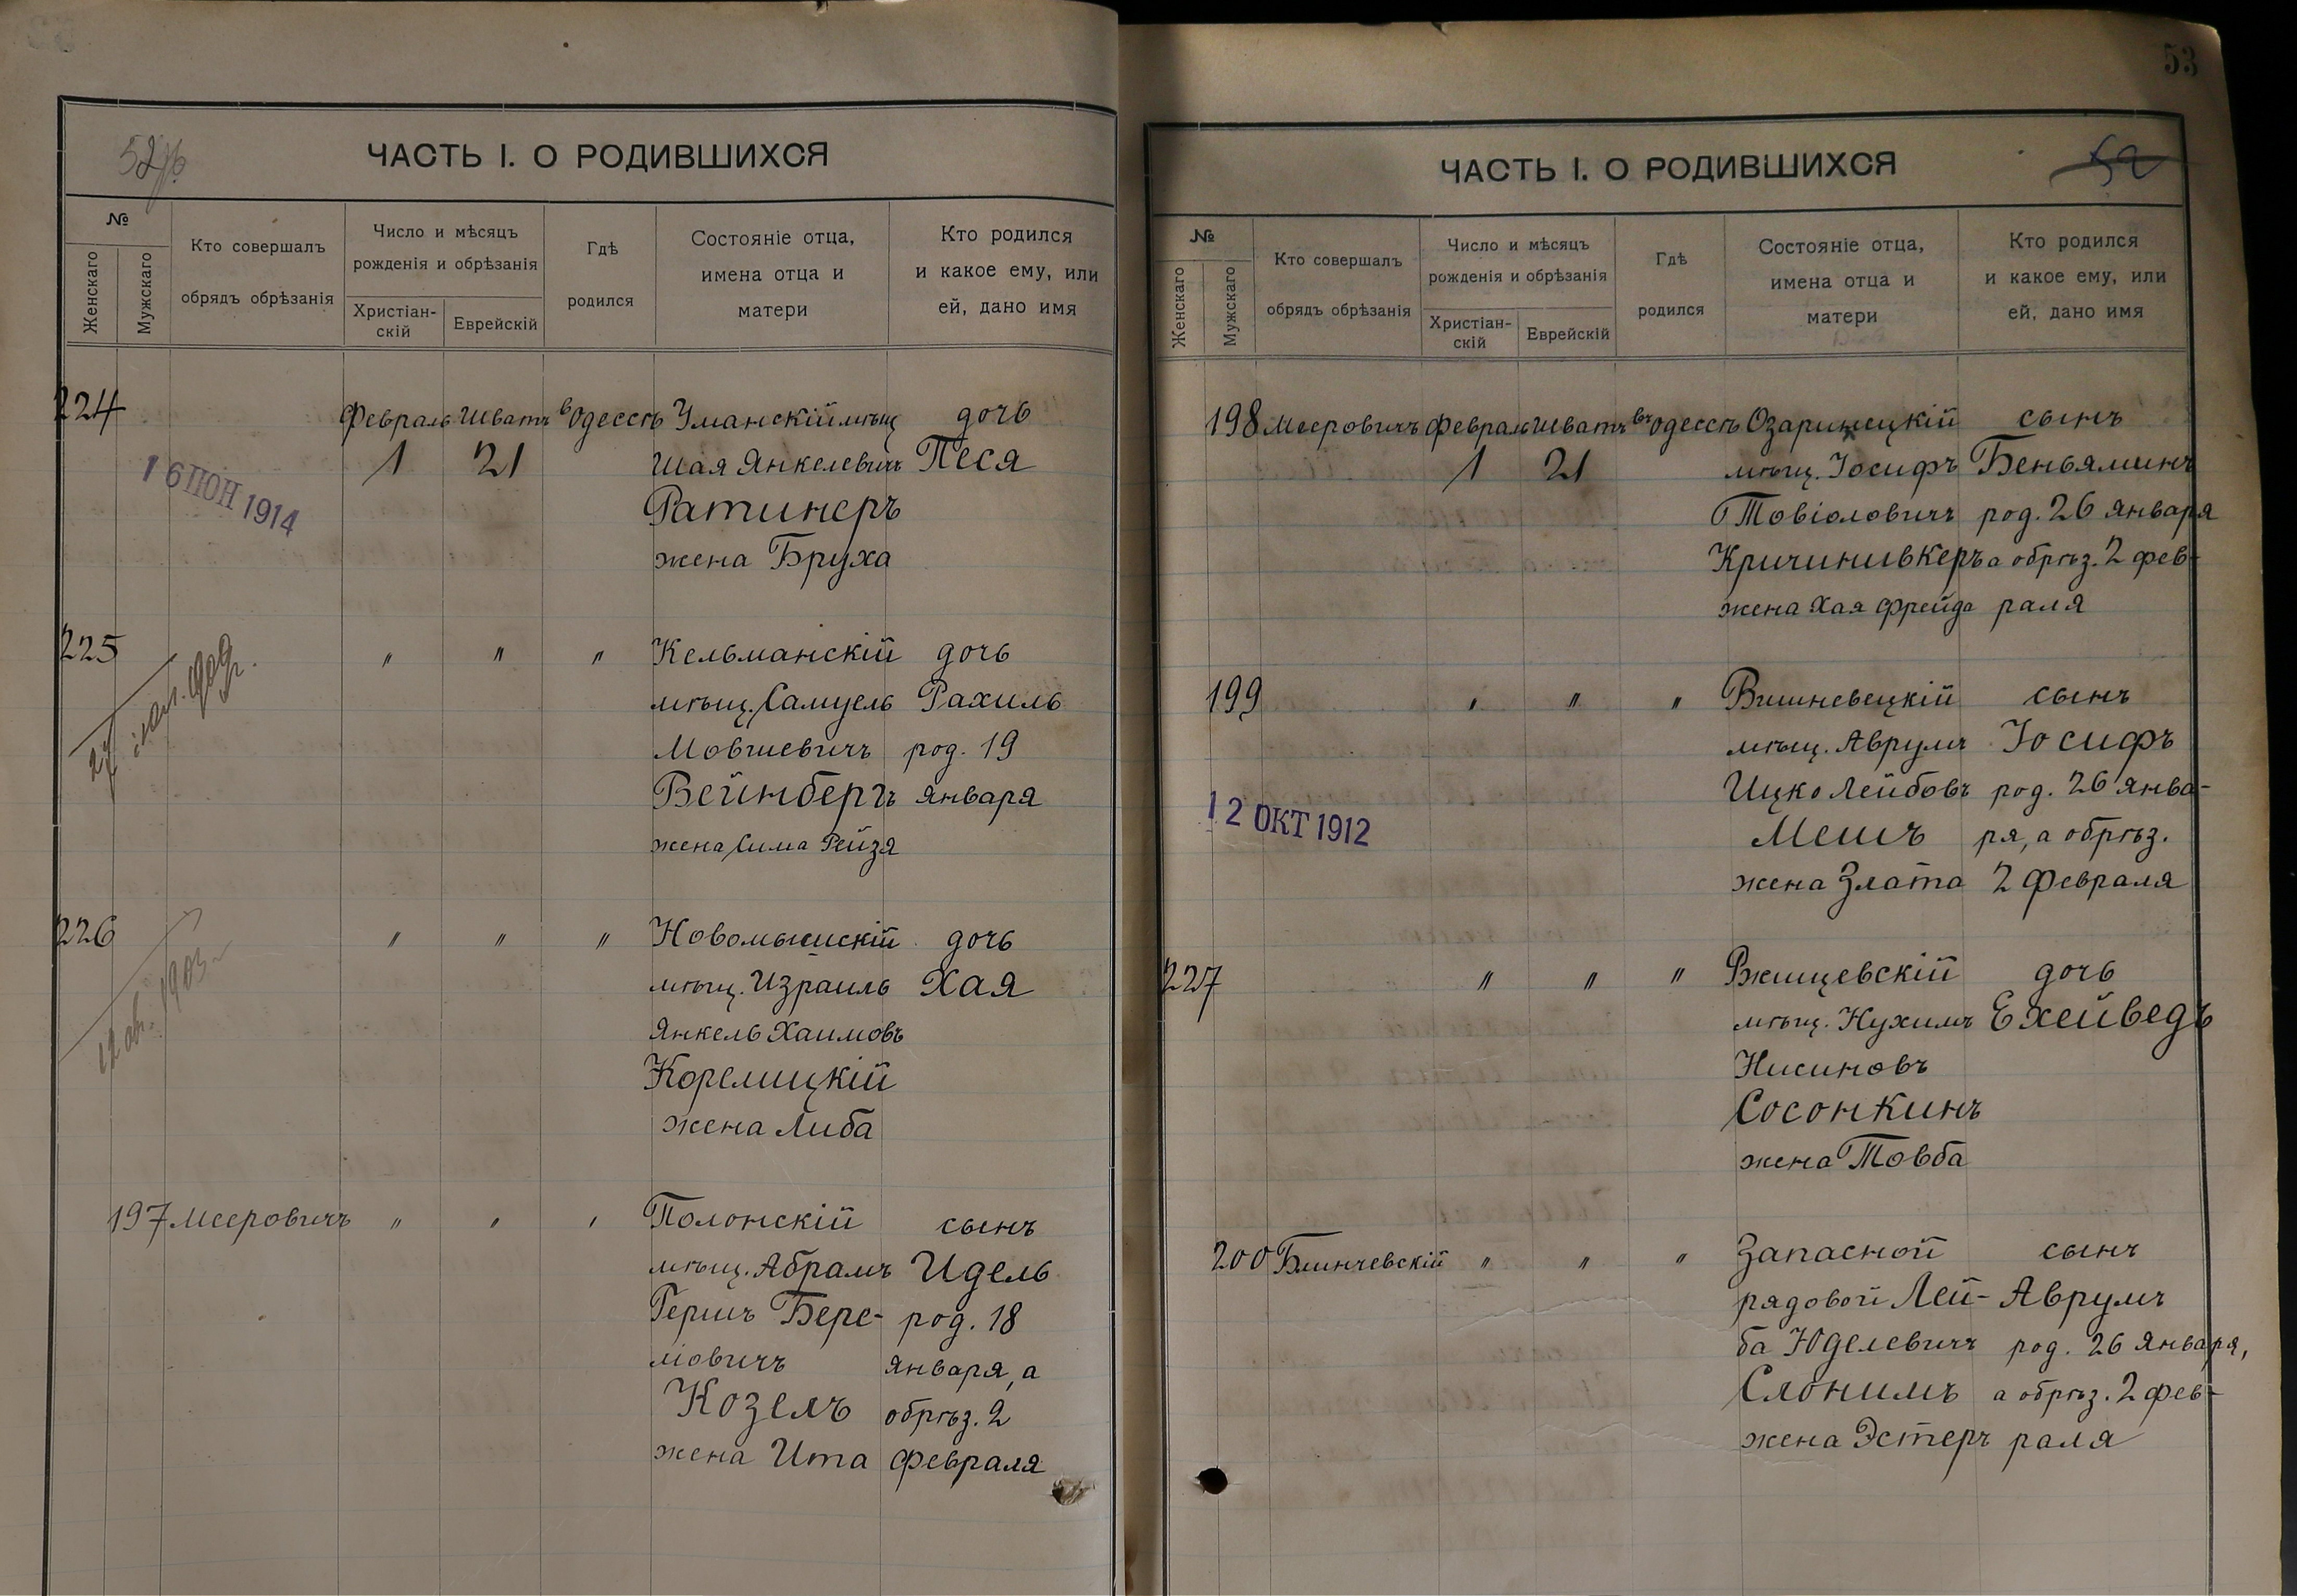 ЧАСТЬ I. О РОДИВШИХСЯ
№
Женскаго
Мужскаго
Кто совершалъ
обрядъ обрѣзанія
Число и мѣсяцъ
рожденія и обрѣзанія
Христіан-
скій
Еврейскій
Гдѣ
родился
Состояніе отца,
имена отца и
матери
Кто родился
и какое ему, или
ей, дано имя
224 Февраль Шватъ въ Одессѣ Уманскій мѣщ дочь
1 21 Шая Янкелевичъ Песя
16 ІЮН 1914
Ратинеръ
жена Бруха
225 " " " Кельманскій дочь
мѣщ. Самуель Рахиль
Мовшевичъ род. 19
Вейнбергъ января
жена Сима Рейзя
226 " " " Новомышскій дочь
мѣщ. Израиль Хая
Янкель Хаимовъ
Корелицкій
жена Либа
197 Мееровичъ " " " Полонскій сынъ
мѣщ. Абрамъ Идель
Гершъ Бере- род. 18
ловичъ января, а
Козелъ обрѣз. 2
жена Ита февраля
53
ЧАСТЬ I. О РОДИВШИХСЯ
52
№
Женскаго
Мужскаго
Кто совершалъ
обрядъ обрѣзанія
Число и мѣсяцъ
рожденія и обрѣзанія
Христіан-
скій
Еврейскій
Гдѣ
родился
Состояніе отца,
имена отца и
матери
Кто родился
и какое ему, или
ей, дано имя
198 Мееровичъ Февраль Шватъ въ Одессѣ Озаринецкій сынъ
1 21 мѣщ. Іосифъ Беньяминъ
Товіоловичъ род. 26 января
Кричинивкеръ а обрѣз. 2 фев-
жена Хая Фрейда раля
199 " " " Вишневецкій сынъ
мѣщ. Аврумъ Іосифъ
Ицко Лейбовъ род. 26 янва-
12 ОКТ 1912
Мешъ ря, а обрѣз.
жена Злата 2 февраля
227 " " " Ржищевскій дочь
мѣщ. Нухимъ Ехейведъ
Нисиновъ
Сосонкинъ
жена Товба
200 Блинчевскій " " " Запасной сынъ
рядовой Лей- Аврумъ
ба Юделевичъ род. 26 января,
Слонимъ а обрѣз. 2 фев-
жена Эстеръ раля